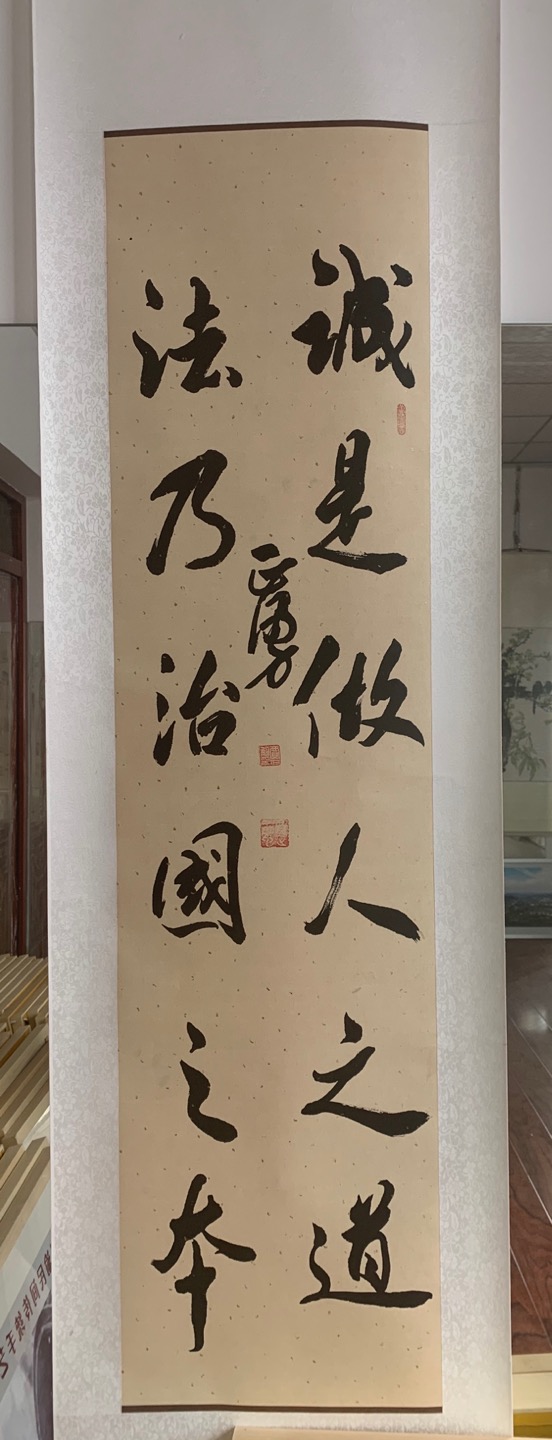 誠是做人之道
法乃治國之本
正勇